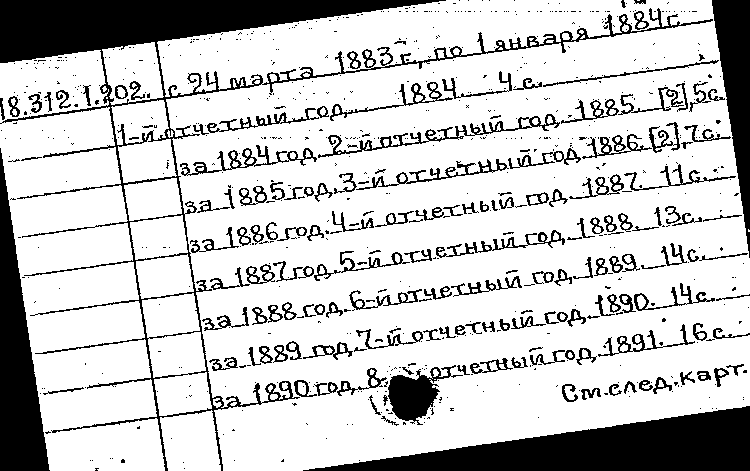 18.312.1.202. с 24 марта 1883 г., по 1 января 1884 г.
1-й отчетный год. 1884. 4 с.
за 1884 год. 2-й отчетный год. 1885. [2],5с.
за 1885 год. 3-й отчетный год. 1886. [2],7с.
за 1886 год. 4-й отчетный год. 1887. 11с.
за 1887 год. 5-й отчетный год. 1888. 13с.
за 1888 год. 6-й отчетный год. 1889. 14с.
за 1889 год. 7-й отчетный год. 1890. 14с.
за 1890 год. 8-й отчетный год. 1891. 16с.
См.след.карт.